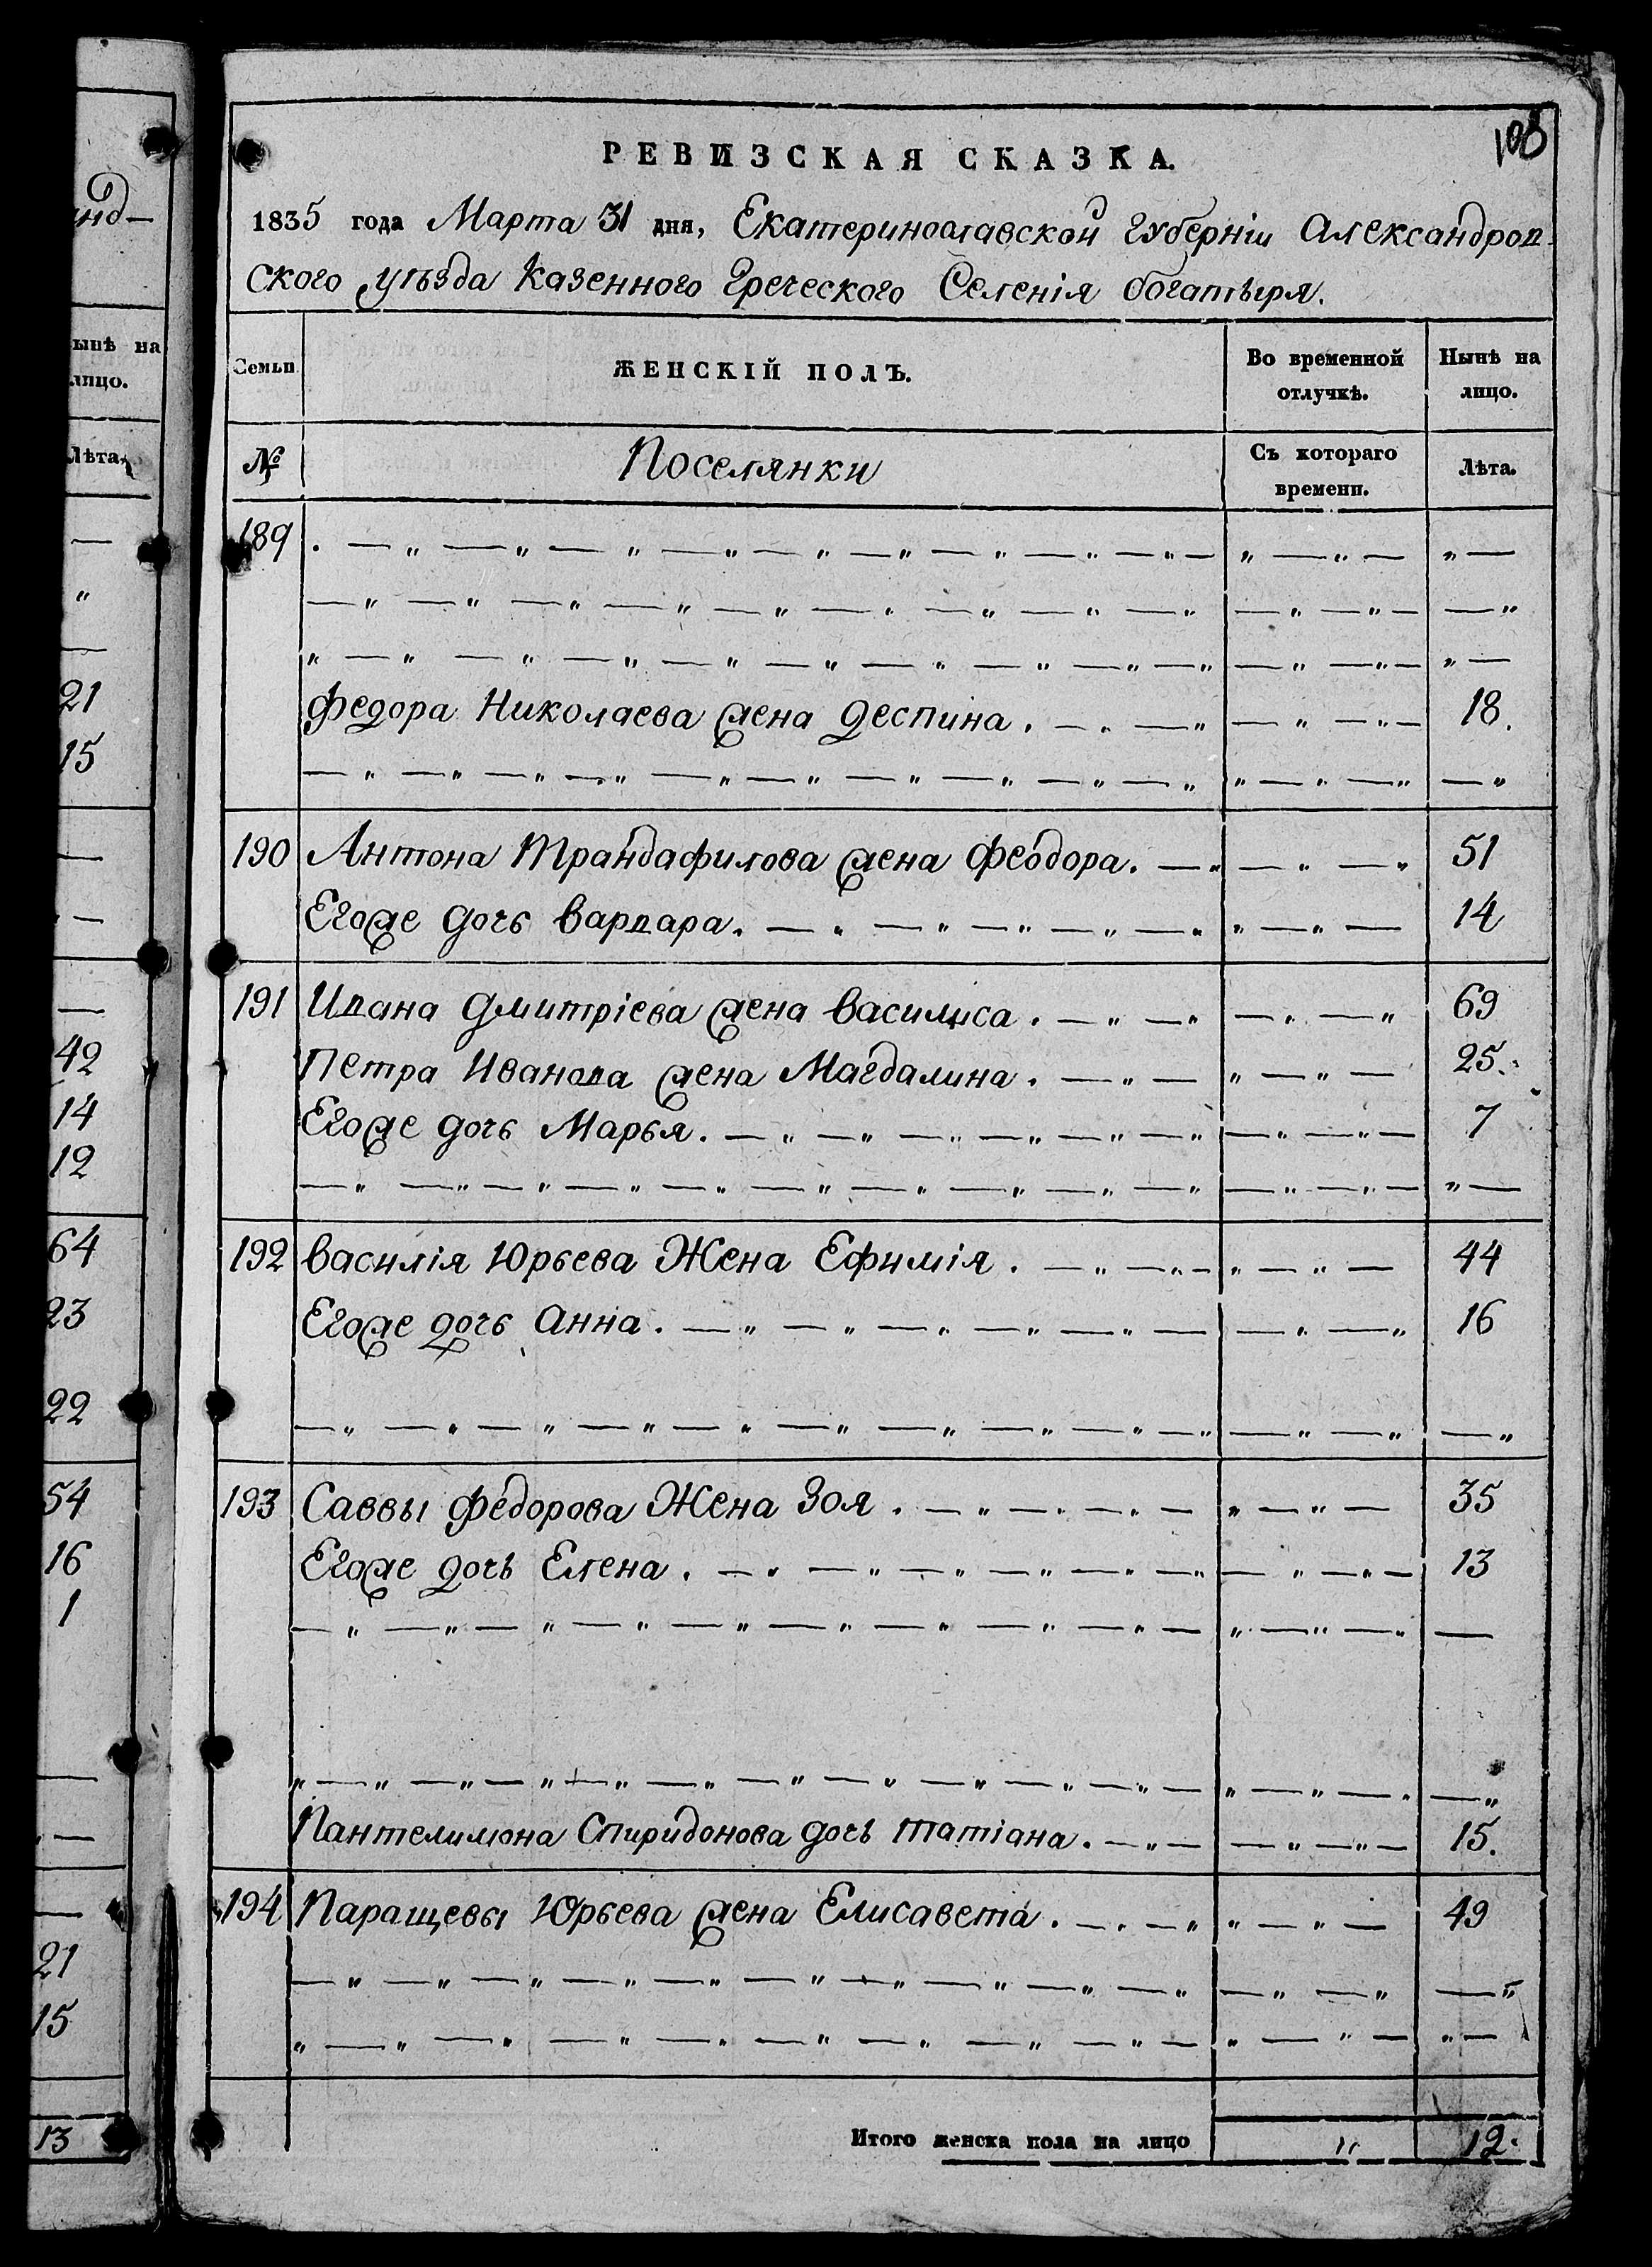 108
РЕВИЗСКАЯ СКАЗКА.
1835 года Марта 31 дня, Екатеринославской Губерніи Александров
ского уѣзда Казенного Греческого Селенія Богатыря.
Семьи ЖЕНСКІЙ ПОЛЪ. Во временной отлучкѣ. Нынѣ на лицо.
№ Поселянки Съ котораго времени. Лѣта.
189 . — „ — „ — „ — „ — „ — „ — „ — „ — „ — „ — „ — „ —
— „ — „ — „ — „ — „ — „ — „ — „ — „ — „ — „ — — „
„ — „ — „ — „ — „ — „ — „ — „ — „ — „ — „ — „ — „ —
Федора Николаева жена Деспина. — „ — „ — „ — „ — 18.
— „ — „ — „ — „ — „ — „ — „ — „ — „ — „ „ — „ — „ — „
190 Антона Трандафилова жена Феодора. — „ — „ — „ 51
Егоже дочь Варвара. — „ — „ — „ — „ — „ „ — „ — 14
191 Ивана Дмитріева жена Василиса. — „ — „ — „ — „ 69
Петра Иванова жена Магдалина. — „ — „ — „ — 25.
Егоже дочь Марья. — „ — „ — „ — „ — „ — „ — „ — „ — 7
— „ — „ — „ — „ — „ — „ — „ — „ — „ — „ — „ — „ — „ —
192 Василія Юрьева Жена Ефимія. — „ — „ — „ — „ — 44
Егоже дочь Анна. — „ — „ — „ — „ — „ — — „ — „ 16
— „ — „ — „ — „ — „ — „ — „ — „ — „ — „ — „ — „ — „
193 Саввы Федорова Жена Зоя. — „ — „ — „ — „ — „ — 35
Егоже дочь Елена. — „ — „ — „ — „ — „ — „ — „ — „ — 13
— „ — „ — „ — „ — „ — „ — „ — „ — „ — „ — „ — „ — „ —
„ — „ — „ — „ — „ — „ — „ — „ — „ — „ — „ — „ — „ — „ — „
Пантелимона Спиридонова дочь Татіана. — „ — — „ — „ — 15.
194 Паращевы Юрьева жена Елисавета. — „ — „ „ — „ — 49
— „ — „ — „ — „ — „ — „ — „ — „ — „ — „ — „ — „ — „
„ — „ — „ — „ — „ — „ — „ — „ — „ — „ — „ — „ „ —
Итого женска пола на лицо „ 12.
инд—
ынѣ на
лицо.
Лѣта.
—
„
—
21
15
—
—
—
42
14
12
64
23
22
54
16
1
—
„ —
—
21
15
13